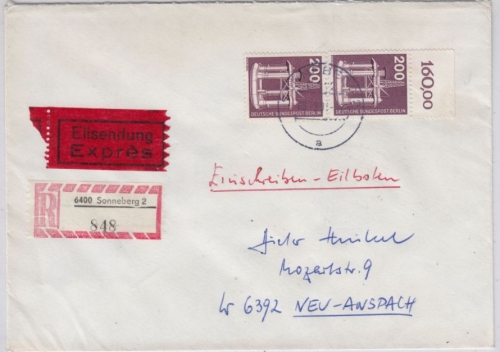 200
200
DEUTSCHE BUNDESPOST BERLIN
DEUTSCHE BUNDESPOST BERLIN
160,00
a
Eilsendung
Exprès
Einschreiben - Eilboten
R
6400 Sonneberg 2
848
Dieter Henkel
Mozartstr. 9
W 6392 NEU-ANSPACH